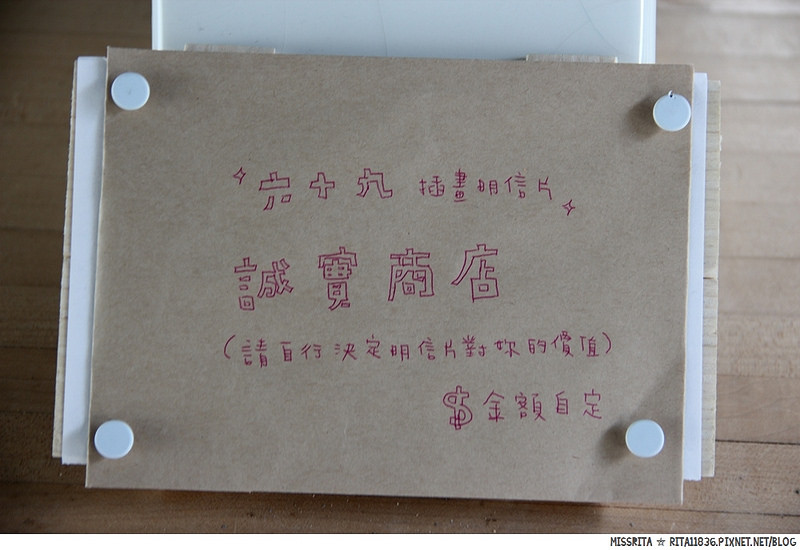 六十九 插畫明信片
誠實商店
(請自行決定明信片對妳的價值)
$金額自定
MISSRITA ☆ RITA11836.PIXNET.NET/BLOG